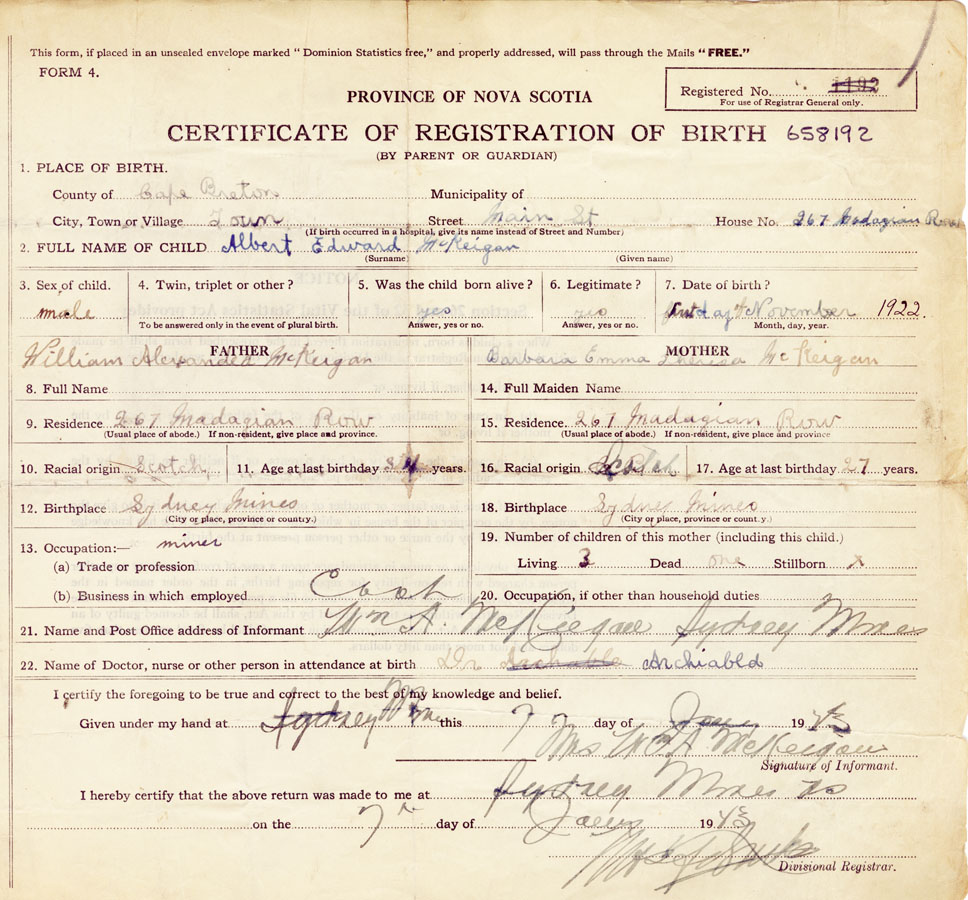 This form, if placed in an unsealed envelope marked "Dominion Statistics free," and properly addressed, will pass through the Mails "FREE."
FORM 4.
Registered No. 1192
For use of Registrar General only.
PROVINCE OF NOVA SCOTIA
CERTIFICATE OF REGISTRATION OF BIRTH 658192
(BY PARENT OR GUARDIAN)
1. PLACE OF BIRTH.
County of Cape Breton Municipality of
City, Town or Village Town Street Main St House No. 267 Row
(If birth occurred in a hospital, give its name instead of Street and Number)
2. FULL NAME OF CHILD Albert Edward McKeigan
(Surname) (Given name)
3. Sex of child. 4. Twin, triplet or other? 5. Was the child born alive? 6. Legitimate? 7. Date of birth?
male yes November 1922.
To be answered only in the event of plural birth. Answer, yes or no. Answer, yes or no. Month, day, year.
FATHER MOTHER
William Alexander McKeigan Barbara Emma Theresa McKeigan
8. Full Name 14. Full Maiden Name
9. Residence 267 Madagian Row 15. Residence. 267 Madagian Row
(Usual place of abode.) If non-resident, give place and province. (Usual place of abode.) If non-resident, give place and province
10. Racial origin Scotch 11. Age at last birthday years. 16. Racial origin 17. Age at last birthday 27 years.
12. Birthplace Sydney Mines 18. Birthplace Sydney Mines
(City or place, province or country.) (City or place, province or country.)
13. Occupation:— miner 19. Number of children of this mother (including this child.)
(a) Trade or profession Living 3 Dead one Stillborn x
(b) Business in which employed 20. Occupation, if other than household duties
21. Name and Post Office address of Informant Wm A. Sydney Mines
22. Name of Doctor, nurse or other person in attendance at birth Dr Archiabld
I certify the foregoing to be true and correct to the best of my knowledge and belief.
Given under my hand at Sydney this 7 day of 19
Mrs Wm A McKeigan
Signature of Informant.
I hereby certify that the above return was made to me at Sydney Mines
on the 7 day of 1943
Divisional Registrar.